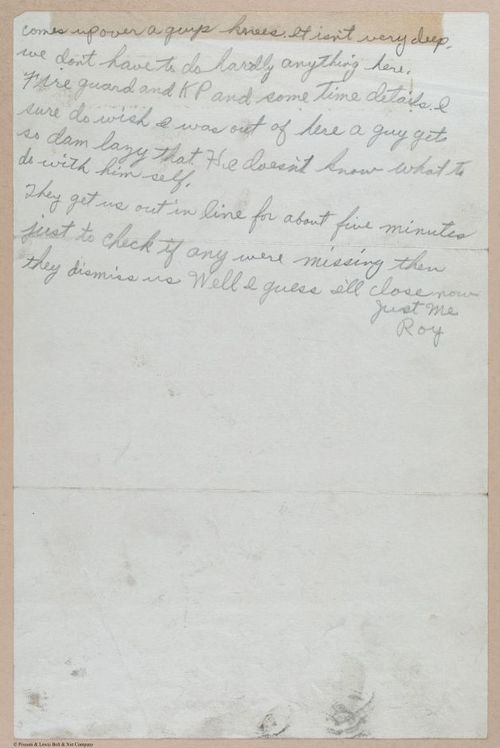 comes up over a guys knees. It isn't very deep.
we dont have to do hardly anything here.
Fire guard and KP and some time details. I
sure do wish I was out of here a guy gets
so dam lazy that He doesn't know what to
do with him self.
They get us out in line for about five minutes
just to check if any were missing then
they dismiss us Well I guess I'll close now
Just Me
Roy
© Pheoll & Lewis Bolt & Nut Company